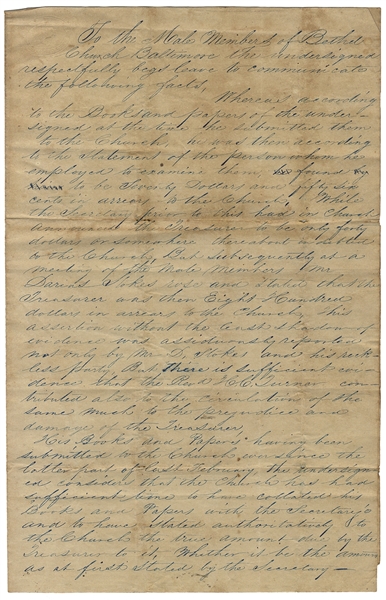 To the Male Members of Bethel
Church Baltimore the undersigned
respectfully begs leave to communicate
the following facts,
Whereas according
to the Books and papers of the under-
signed at the time he submitted them
to the Church, he was then according
to the Statement of the person whom he
employed to examine them, found
to be Seventy Dollars and fifty six
cents in arrears to the Church, While
the Secretary prior to this had in Church
announced the Treasurer to be only forty
dollars or somewhere thereabout in debt
to the Church, But Subsequently at a
meeting of the Male Members Mr
Darius Stokes rose and Stated that the
Treasurer was then Eight Hundred
dollars in arrears to the Church, This
assertion without the least shadow of
evidence was assiduously reported
not only by Mr. D. Stokes and his reck-
less party, But there is sufficient evi-
dence that the Revd H. C. Turner con-
tributed also to the circulation of the
same much to the prejudice and
damage of the Treasurer,
His Books and Papers having been
submitted to the Church ever since the
latter part of last February, the undersign-
ed considers that the Church has had
sufficient time to have collated his
Books and Papers with the Secretary's
and to have Stated authoritatively to
the Church the true amount due by the
Treasurer to it, Whether it be the amount
as at first Stated by the Secretary —